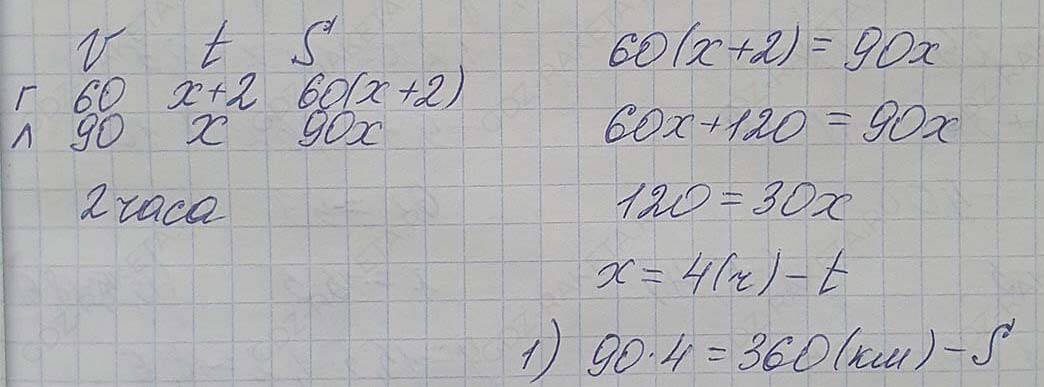 v t S
г 60 x+2 60(x+2)
л 90 x 90x
2 часа
60(x+2) = 90x
60x+120 = 90x
120 = 30x
x = 4(ч) – t
1) 90·4 = 360(км) – S